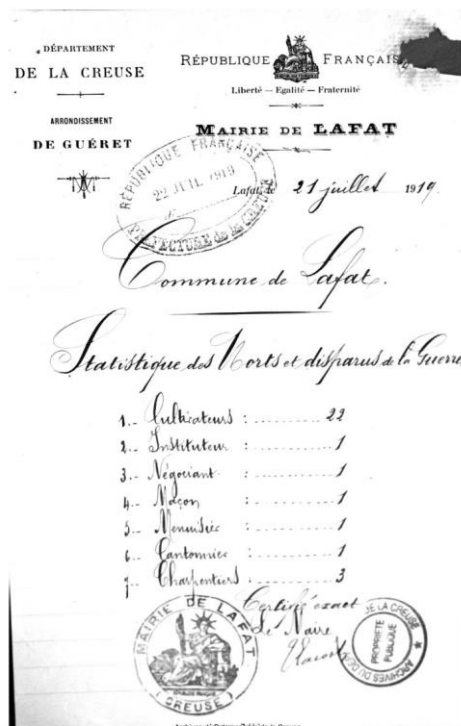 DÉPARTEMENT
DE LA CREUSE
ARRONDISSEMENT
DE GUÉRET
RÉPUBLIQUE FRANÇAIS
Liberté — Egalité — Fraternité
MAIRIE DE LAFAT
RÉPUBLIQUE FRANÇAISE
22 JUIL. 1919
PRÉFECTURE de la CREUSE
Lafat, le 21 juillet 1919.
Commune de Lafat.
Statistique des Morts et disparus de la Guerre
1.- Cultivateurs : 22
2.- Instituteur : 1
3.- Négociant : 1
4.- Maçon : 1
5.- Menuisier : 1
6.- Cantonnier : 1
7.- Charpentiers : 3
Certifié exact
Le Maire
MAIRIE DE LAFAT
(CREUSE)
ARCHIVES DE LA CREUSE
PROPRIÉTÉ
PUBLIQUE